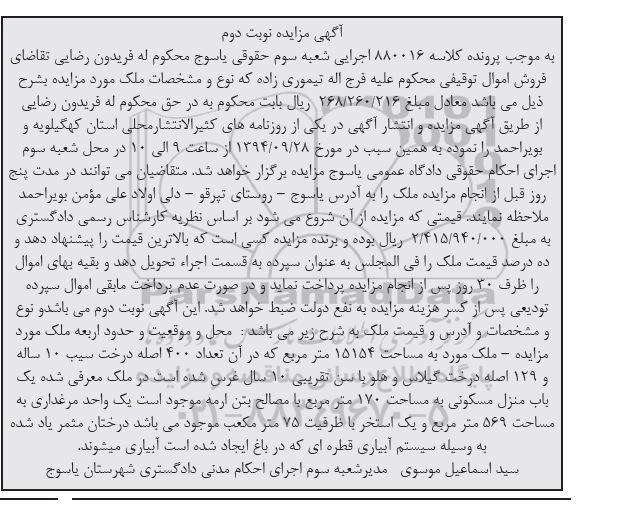 آگهی مزایده نوبت دوم
به موجب پرونده کلاسه ۸۸۰۰۱۶ اجرایی شعبه سوم حقوقی یاسوج محکوم له فریدون رضایی تقاضای
فروش اموال توقیفی محکوم علیه فرج اله تیموری زاده که نوع و مشخصات ملک مورد مزایده بشرح
ذیل می باشد معادل مبلغ ۲۶۸/۲۶۰/۲۱۶ ریال بابت محکوم به در حق محکوم له فریدون رضایی
از طریق آگهی مزایده و انتشار آگهی در یکی از روزنامه های کثیرالانتشارمحلی استان کهگیلویه و
بویراحمد را نموده به همین سبب در مورخ ۱۳۹۴/۰۹/۲۸ از ساعت ۹ الی ۱۰ در محل شعبه سوم
اجرای احکام حقوقی دادگاه عمومی یاسوج مزایده برگزار خواهد شد. متقاضیان می توانند در مدت پنج
روز قبل از انجام مزایده ملک را به آدرس یاسوج – روستای تپرقو – دلی اولاد علی مؤمن بویراحمد
ملاحظه نمایند. قیمتی که مزایده از آن شروع می شود بر اساس نظریه کارشناس رسمی دادگستری
به مبلغ ۲/۴۱۵/۹۴۰/۰۰۰ ریال بوده و برنده مزایده کسی است که بالاترین قیمت را پیشنهاد دهد و
ده درصد قیمت ملک را فی المجلس به عنوان سپرده به قسمت اجراء تحویل دهد و بقیه بهای اموال
را ظرف ۳۰ روز پس از انجام مزایده پرداخت نماید و در صورت عدم پرداخت مابقی اموال سپرده
تودیعی پس از کسر هزینه مزایده به نفع دولت ضبط خواهد شد. این آگهی نوبت دوم می باشدو نوع
و مشخصات و آدرس و قیمت ملک به شرح زیر می باشد : محل و موقعیت و حدود اربعه ملک مورد
مزایده – ملک مورد به مساحت ۱۵۱۵۴ متر مربع که در آن تعداد ۴۰۰ اصله درخت سیب ۱۰ ساله
و ۱۲۹ اصله درخت گیلاس و هلو با سن تقریبی ۱۰ سال غرس شده است در ملک معرفی شده یک
باب منزل مسکونی به مساحت ۱۷۰ متر مربع با مصالح بتن ارمه موجود است یک واحد مرغداری به
مساحت ۵۶۹ متر مربع و یک استخر با ظرفیت ۷۵ متر مکعب موجود می باشد درختان مثمر یاد شده
به وسیله سیستم آبیاری قطره ای که در باغ ایجاد شده است آبیاری میشوند.
سید اسماعیل موسوی   مدیرشعبه سوم اجرای احکام مدنی دادگستری شهرستان یاسوج
ParsNamadData
۰۲۱-۸۸۳۴۹۶۷۰-۵